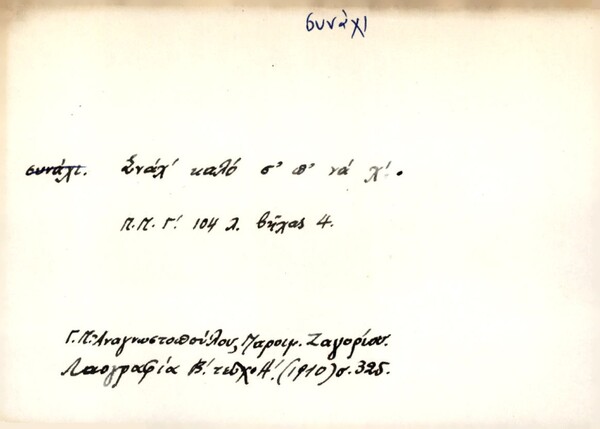 συνάχι
συνάχι. Σνάχ' καλό σ' π' νά χ'.
Π.Π. Γ'. 104 λ. βῆχας 4.
Γ. Π. Ἀναγνωστοπούλου, Παροιμ. Ζαγορίου.
Λαογραφία Β'. τεῦχο Α'. (1910) σ. 325.